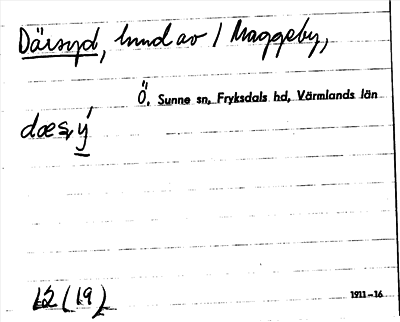 Därsyd, lmd av 1 Maggeby,
Ö. Sunne sn, Fryksdals hd, Värmlands län
dæs, ý
12 (19)
1911-16